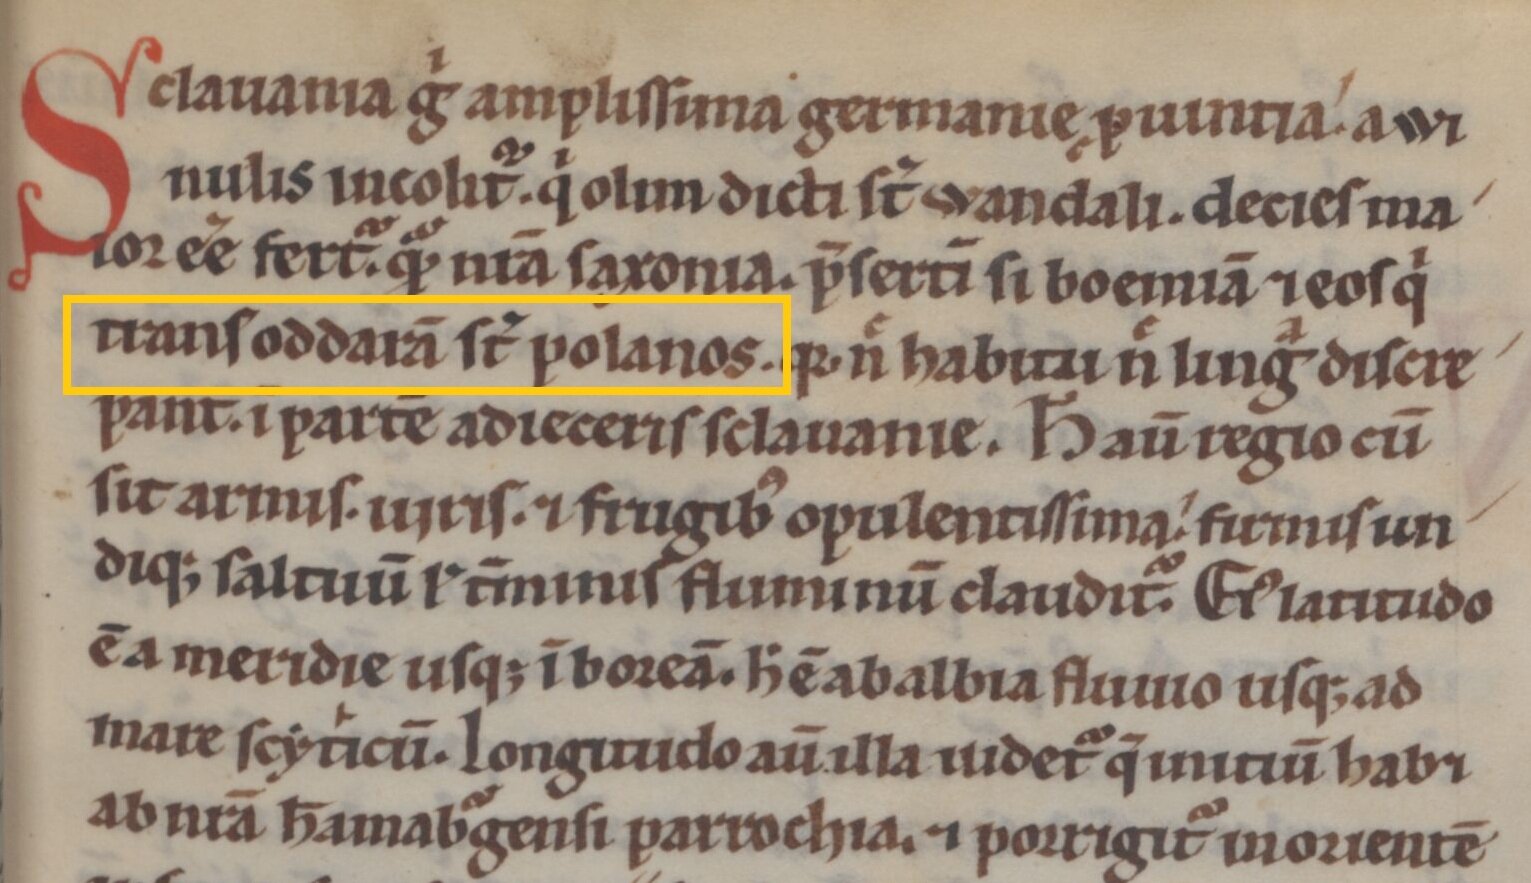 Sclauania gͥ amplissima germanię ꝓuintia. a wi
nulis incolit᷑. qͥ olim dicti st̄ wandali. decies ma
ior eē̄ fert᷑. qͣ nr̄a saxonia. p̄serti̅ si boemiā ⁊ eos qͥ
trans oddarā st̄ polanos. qꝛ nͤ habitu nͤ lingᷓ discre
pant. ī partē adieceris sclauanie. Ħ aū regio cū
sit armis. uiris. ⁊ frugibꝰ opulentissima. firmis un
diqꝫ saltuū ł t̄minis fluminū claudit᷑. Eiꝰ latitudo
ē a meridie usqꝫ ī boreā. h̄ ē ab albia fluuio usqꝫ ad
mare scyticū. Longitudo aū illa uidet᷑ q̄ initiū habꝫ
ab nr̄a ħamabᷣgensi parrochia. ⁊ porrigit᷑ in orientē